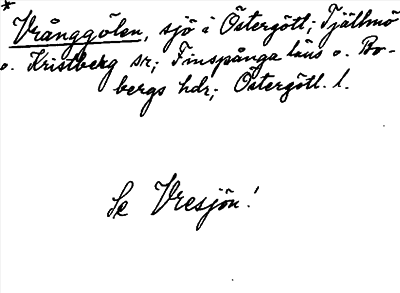 * Vrånggölen, sjö i Östergötl; Tjällmö
o. Kristberg sr; Finspånga läns o. Bo-
bergs hdr; Östergötl. l.
Se Vresjön!